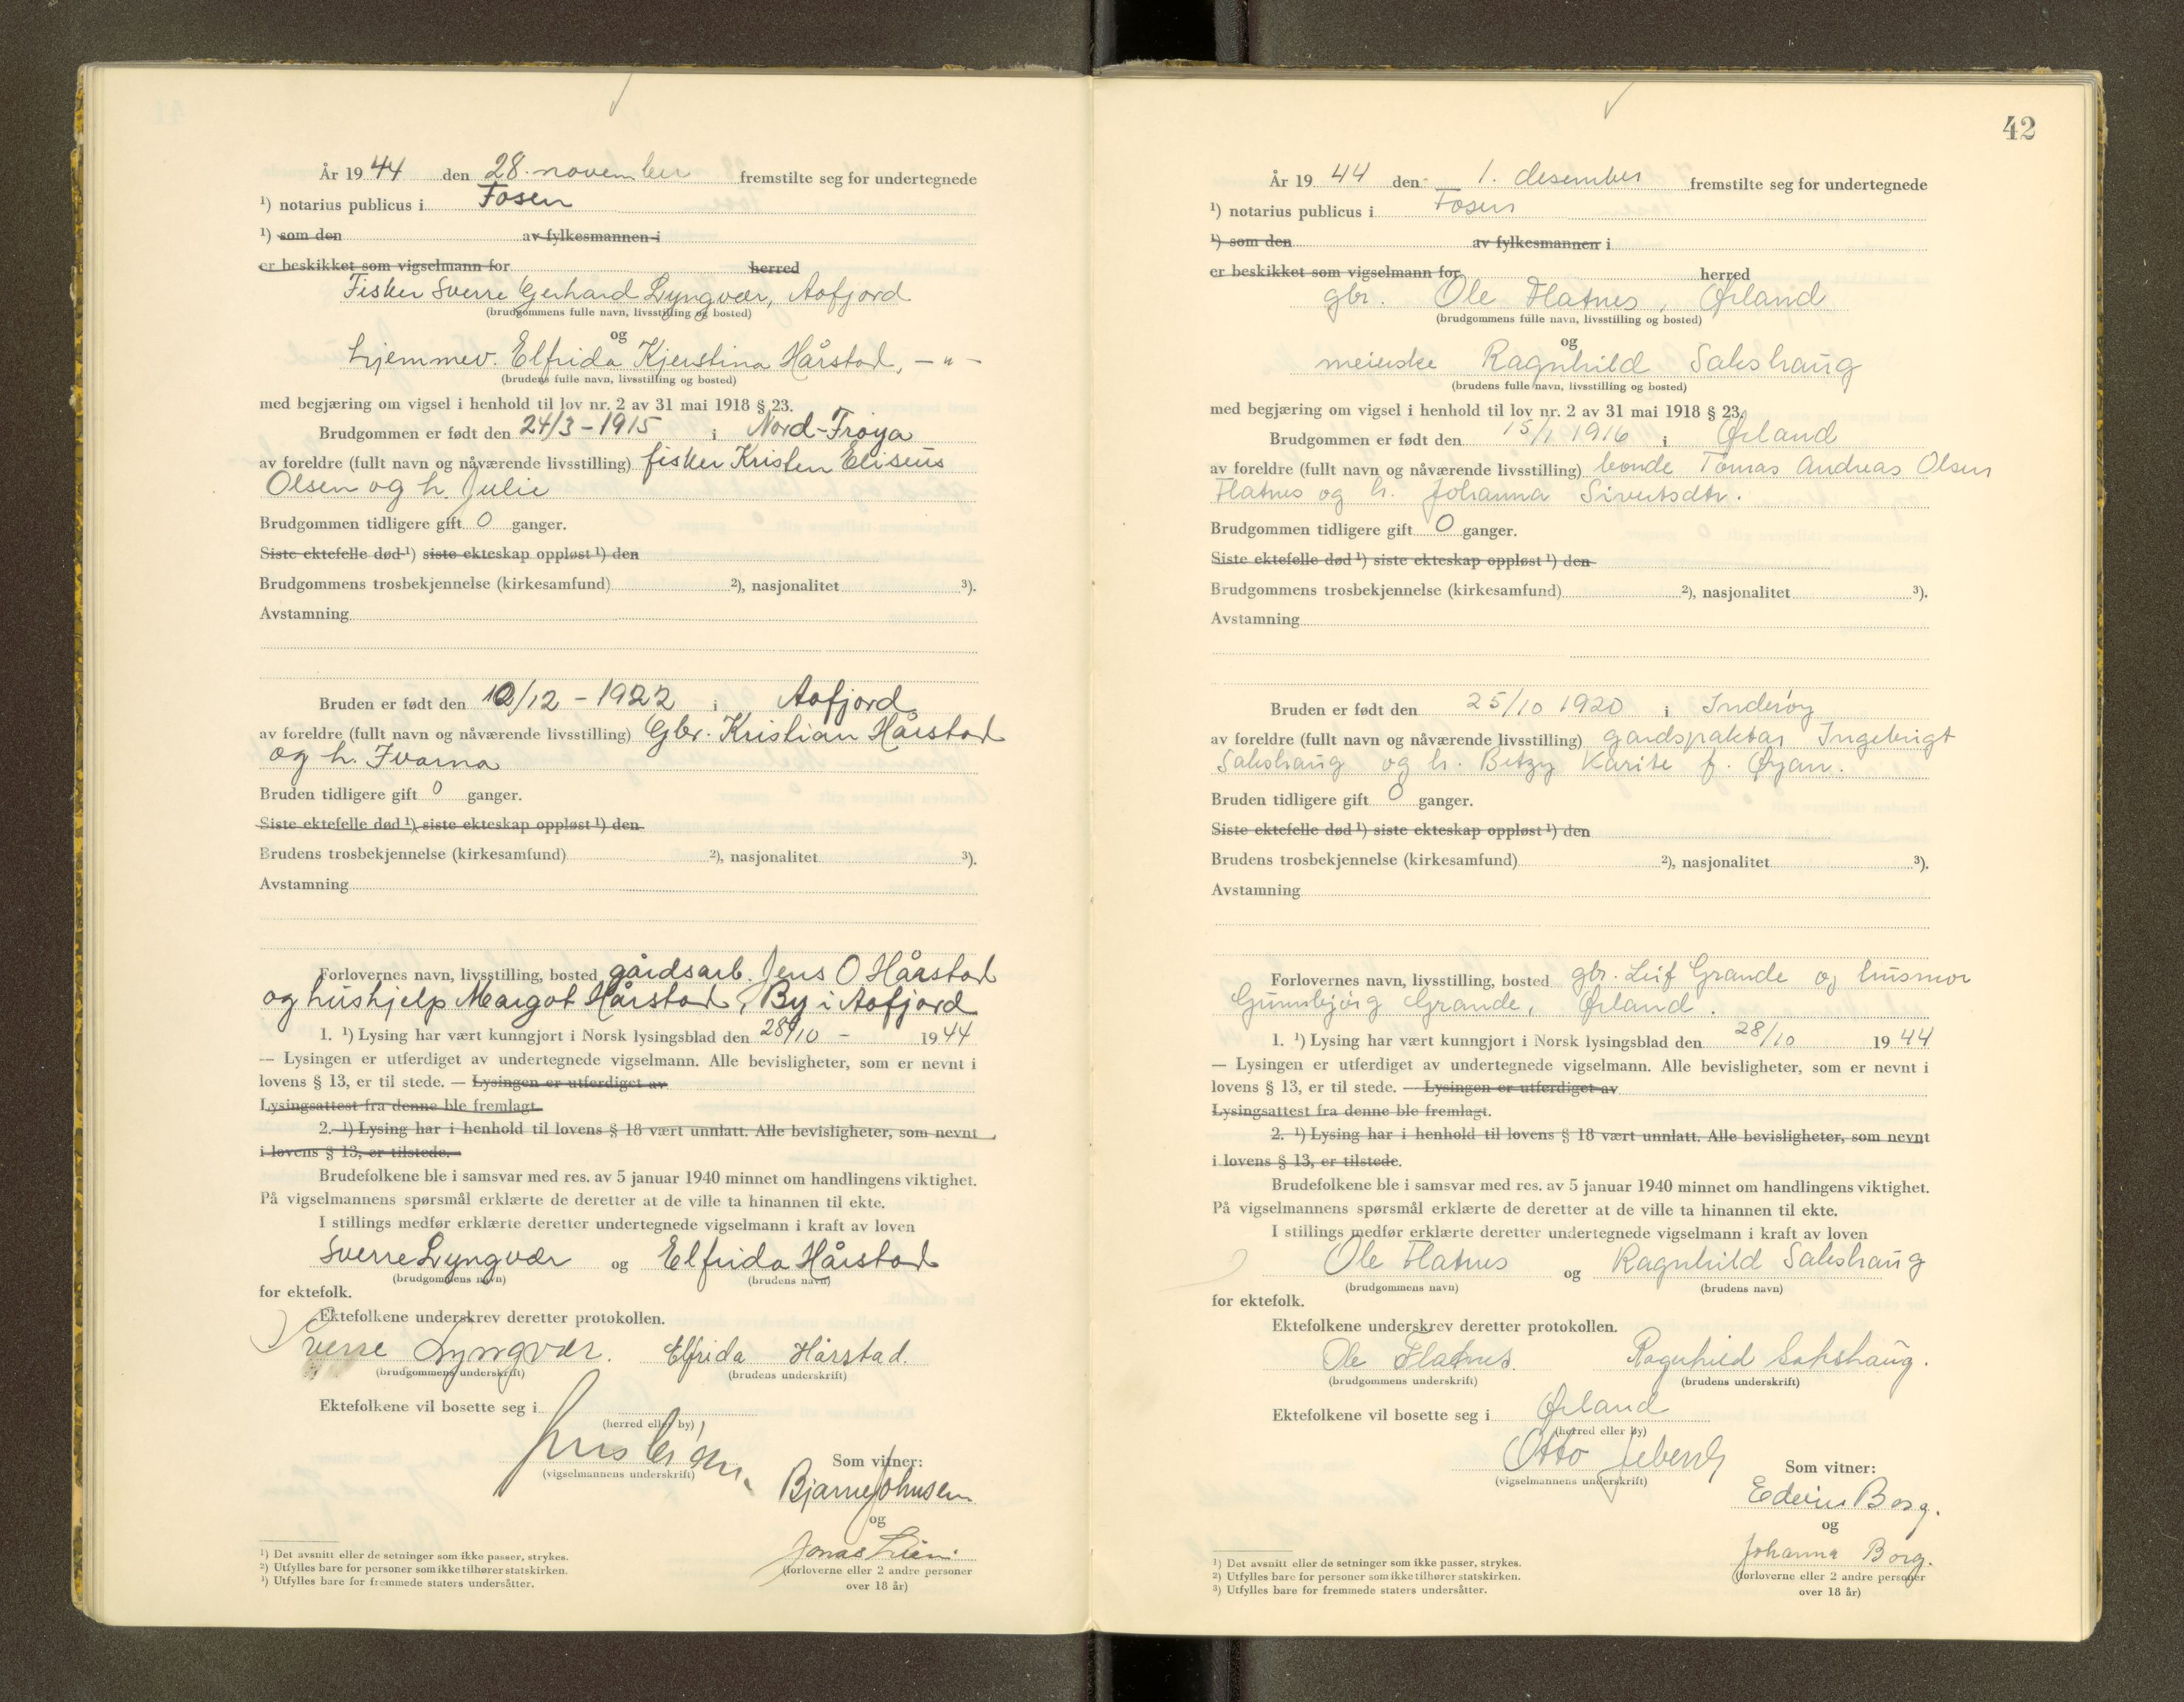 År 1944 den 28. november fremstilte seg for undertegnede
¹) notarius publicus i Fosen
¹) som den av fylkesmannen i
er beskikket som vigselmann for herred
Fisker Sverre Gerhard Lyngvær, Aafjord
(brudgommens fulle navn, livsstilling og bosted)
og
hjemmev. Elfrida Kjerstina Hårstad, — " —
(brudens fulle navn, livsstilling og bosted)
med begjæring om vigsel i henhold til lov nr. 2 av 31 mai 1918 § 23.
Brudgommen er født den 24/3 - 1915 i Nord-Frøya
av foreldre (fullt navn og nåværende livsstilling) fisker Kristen Eliseus
Olsen og h. Julie
Brudgommen tidligere gift 0 ganger.
Siste ektefelle død ¹) siste ekteskap oppløst ¹) den
Brudgommens trosbekjennelse (kirkesamfund) ²), nasjonalitet ³).
Avstamning
Bruden er født den /12 - 1922 i Aafjord
av foreldre (fullt navn og nåværende livsstilling) Gbr. Kristian Hårstad
og h. Ivarna
Bruden tidligere gift 0 ganger.
Siste ektefelle død ¹) siste ekteskap oppløst ¹) den
Brudens trosbekjennelse (kirkesamfund) ²), nasjonalitet ³).
Avstamning
Forlovernes navn, livsstilling, bosted gårdsarb. Jens O Hårstad
og hushjelp Margot Hårstad, By i Aafjord
1. ¹) Lysing har vært kunngjort i Norsk lysingsblad den 28/10 - 1944
— Lysingen er utferdiget av undertegnede vigselmann. Alle bevisligheter, som er nevnt i
lovens § 13, er til stede. — Lysingen er utferdiget av
Lysingsattest fra denne ble fremlagt.
2. ¹) Lysing har i henhold til lovens § 18 vært unnlatt. Alle bevisligheter, som nevnt
i lovens § 13, er tilstede.
Brudefolkene ble i samsvar med res. av 5 januar 1940 minnet om handlingens viktighet.
På vigselmannens spørsmål erklærte de deretter at de ville ta hinannen til ekte.
I stillings medfør erklærte deretter undertegnede vigselmann i kraft av loven
Sverre Lyngvær og Elfrida Hårstad
(brudgommens navn) (brudens navn)
for ektefolk.
Ektefolkene underskrev deretter protokollen.
Sverre Lyngvær. Elfrida Hårstad.
(brudgommens underskrift) (brudens underskrift)
Ektefolkene vil bosette seg i
(herred eller by)
(vigselmannens underskrift)
Som vitner:
Bjarne Johnsen
og
Jonas Lien
(forloverne eller 2 andre personer
over 18 år)
¹) Det avsnitt eller de setninger som ikke passer, strykes.
²) Utfylles bare for personer som ikke tilhører statskirken.
³) Utfylles bare for fremmede staters undersåtter.
42
År 1944 den 1. desember fremstilte seg for undertegnede
¹) notarius publicus i Fosen
¹) som den av fylkesmannen i
er beskikket som vigselmann for herred
gbr. Ole Flatnes, Ørland
(brudgommens fulle navn, livsstilling og bosted)
og
meierske Ragnhild Sakshaug
(brudens fulle navn, livsstilling og bosted)
med begjæring om vigsel i henhold til lov nr. 2 av 31 mai 1918 § 23.
Brudgommen er født den 15/1 1916 i Ørland
av foreldre (fullt navn og nåværende livsstilling) bonde Tomas Andreas Olsen
Flatnes og h. Johanna Sivertsdtr.
Brudgommen tidligere gift 0 ganger.
Siste ektefelle død ¹) siste ekteskap oppløst ¹) den
Brudgommens trosbekjennelse (kirkesamfund) ²), nasjonalitet ³).
Avstamning
Bruden er født den 25/10 1920 i Inderøy
av foreldre (fullt navn og nåværende livsstilling) gardspaktar Ingebrigt
Sakshaug og h. Betzy Karite f. Øyan.
Bruden tidligere gift 0 ganger.
Siste ektefelle død ¹) siste ekteskap oppløst ¹) den
Brudens trosbekjennelse (kirkesamfund) ²), nasjonalitet ³).
Avstamning
Forlovernes navn, livsstilling, bosted gbr. Leif Grande og husmor
Gunnbjørg Grande, Ørland.
1. ¹) Lysing har vært kunngjort i Norsk lysingsblad den 28/10 1944
— Lysingen er utferdiget av undertegnede vigselmann. Alle bevisligheter, som er nevnt i
lovens § 13, er til stede. — Lysingen er utferdiget av
Lysingsattest fra denne ble fremlagt.
2. ¹) Lysing har i henhold til lovens § 18 vært unnlatt. Alle bevisligheter, som nevnt
i lovens § 13, er tilstede.
Brudefolkene ble i samsvar med res. av 5 januar 1940 minnet om handlingens viktighet.
På vigselmannens spørsmål erklærte de deretter at de ville ta hinannen til ekte.
I stillings medfør erklærte deretter undertegnede vigselmann i kraft av loven
Ole Flatnes og Ragnhild Sakshaug
(brudgommens navn) (brudens navn)
for ektefolk.
Ektefolkene underskrev deretter protokollen.
Ole Flatnes. Ragnhild Sakshaug.
(brudgommens underskrift) (brudens underskrift)
Ektefolkene vil bosette seg i Ørland
(herred eller by)
Otto
(vigselmannens underskrift)
Som vitner:
Edvin Borg.
og
Johanna Borg.
(forloverne eller 2 andre personer
over 18 år)
¹) Det avsnitt eller de setninger som ikke passer, strykes.
²) Utfylles bare for personer som ikke tilhører statskirken.
³) Utfylles bare for fremmede staters undersåtter.